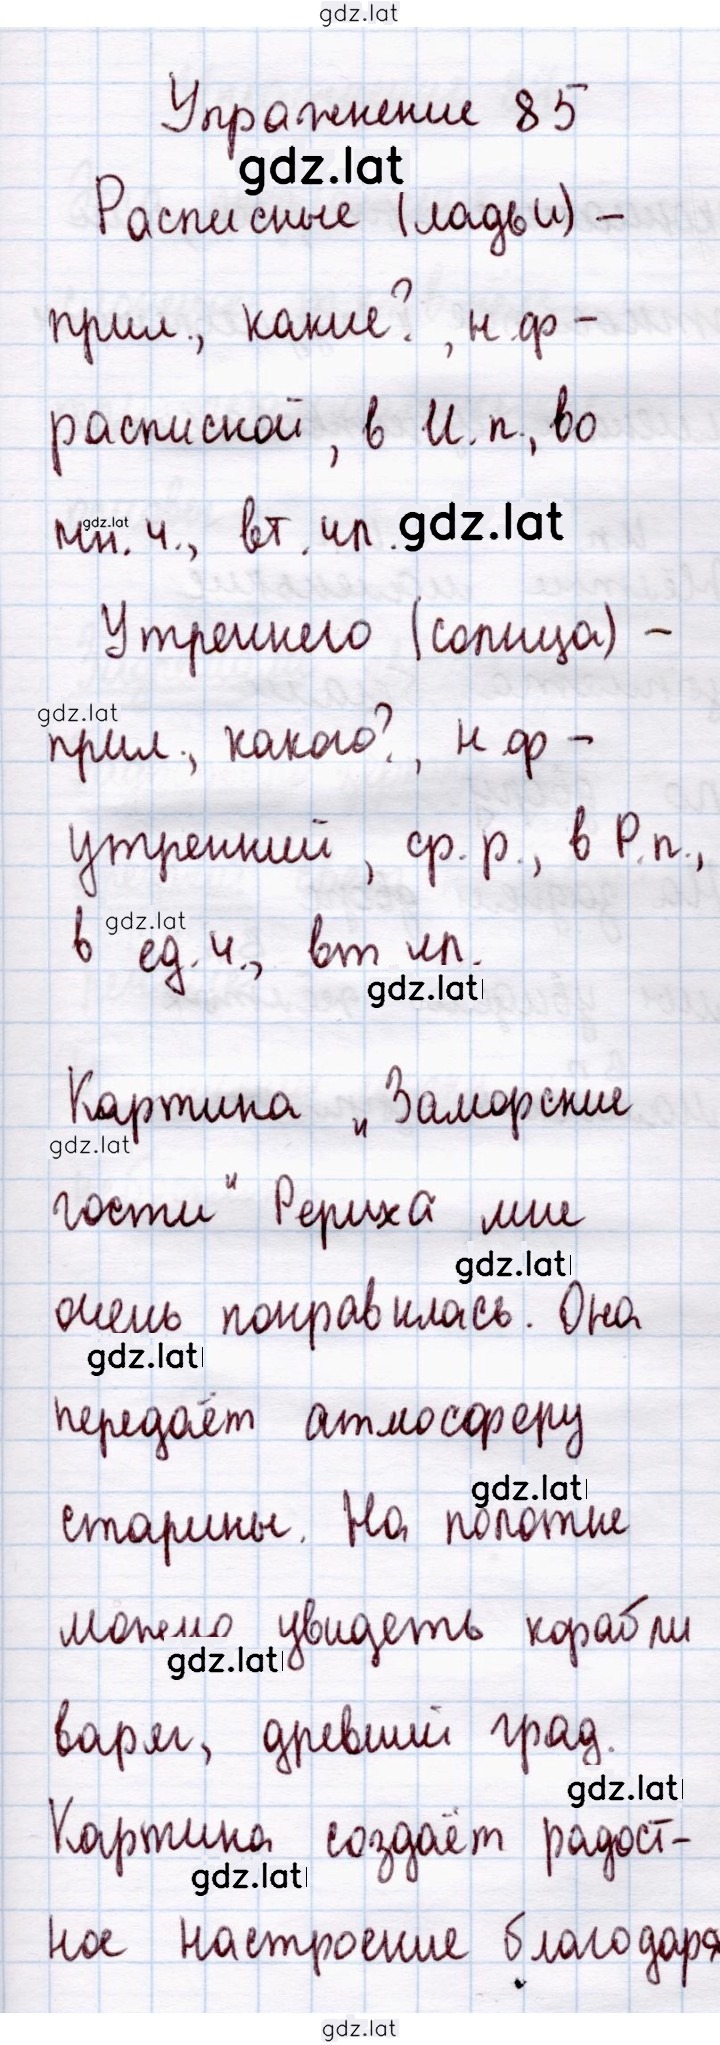 gdz.lat
Упражнение 85
gdz.lat
Расписные (ладьи) –
прил., какие?, н.ф –
расписной, в И.п., во
gdz.lat
мн. ч., вт. чл.
gdz.lat
Утреннего (солнца) –
gdz.lat
прил., какого?, н.ф –
утренний, ср. р., в Р.п.,
gdz.lat
в ед. ч., вт чл.
gdz.lat
Картина „Заморские
gdz.lat
гости“ Рериха мне
gdz.lat
очень понравилась. Она
gdz.lat
передаёт атмосферу
gdz.lat
старины. На полотне
можно увидеть корабли
gdz.lat
варяг, древний град.
gdz.lat
Картина создаёт радост-
gdz.lat
ное настроение благодаря
gdz.lat